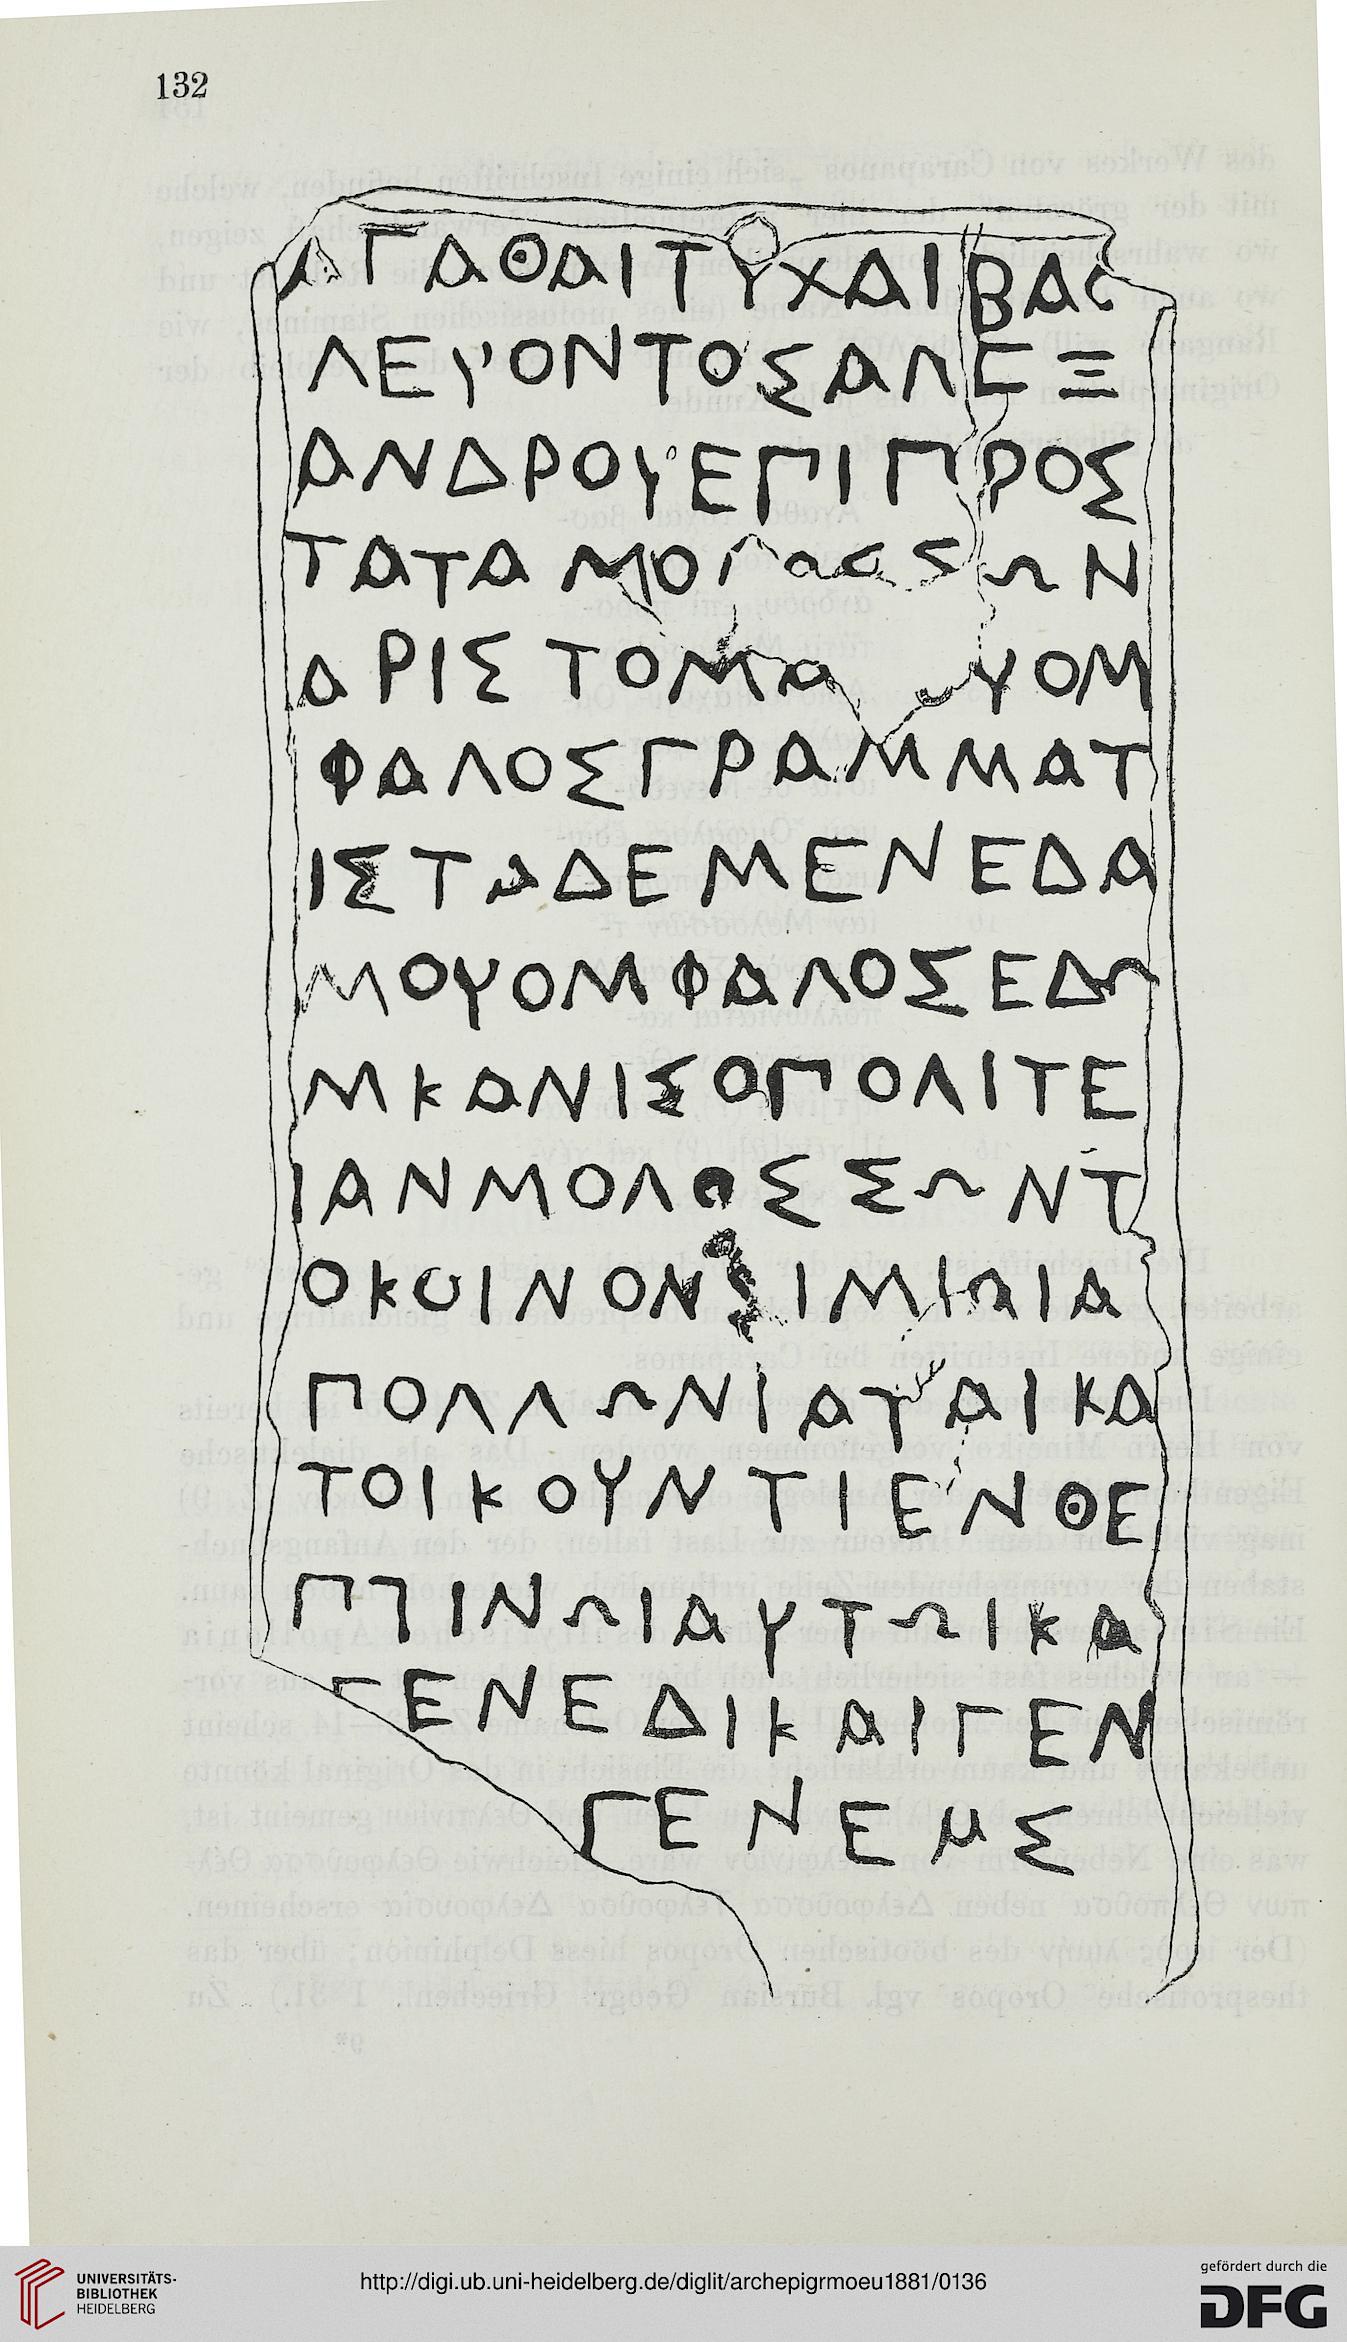 132
ΑΓΑΘΑΙΤΥΧΑΙΒΑΣ
ΛΕΥΟΝΤΟΣΑΛΕΞ
ΑΝΔΡΟΥΕΠΙΠΡΟΣ
ΤΑΤΑΜΟΛΟΣΣΩΝ
ΑΡΙΣΤΟΜΑ ΥΟΜ
ΦΑΛΟΣΓΡΑΜΜΑΤ
ΙΣΤΑΔΕΜΕΝΕΔΑ
ΜΟΥΟΜΦΑΛΟΣΕΔΩ
ΜΚΑΝΙΣΟΠΟΛΙΤΕ
ΙΑΝΜΟΛΟΣΣΩΝΤ
ΟΚΟΙΝΟΝΣΙΜΙΩΙΑ
ΠΟΛΛΩΝΙΑΤΑΙΚΑ
ΤΟΙΚΟΥΝΤΙΕΝΘΕ
ΠΤΙΝΩΙΑΥΤΩΙΚΑ
ΓΕΝΕΔΙΚΑΙΓΕΝ
ΓΕΝΕΜΣ
UNIVERSITÄTS-
BIBLIOTHEK
HEIDELBERG
http://digi.ub.uni-heidelberg.de/diglit/archepigrmoeu1881/0136
gefördert durch die
DFG